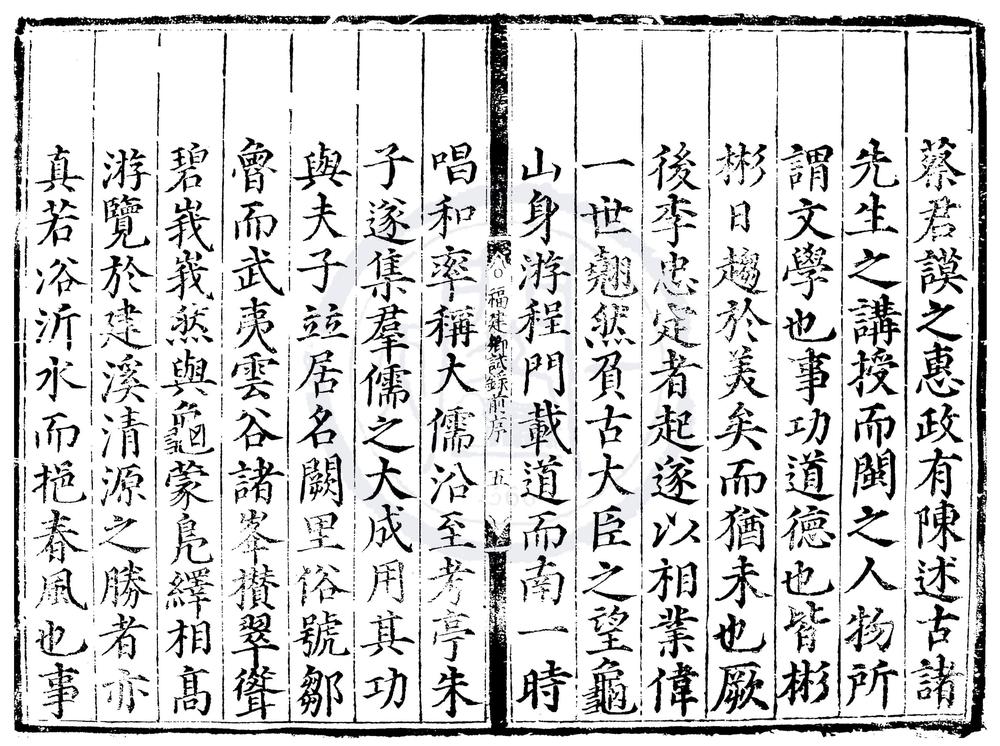 蔡君謨之惠政有陳述古諸
先生之講授而閩之人物所
謂文學也事功道德也皆彬
彬日趨於美矣而猶未也厥
後李忠定者起遂以相業偉
一世翹然負古大臣之望龜
山身游程門載道而南一時
福建鄉試錄前序 五
唱和率稱大儒沿至考亭朱
子遂集羣儒之大成用其功
與夫子竝居名闕里俗號鄒
魯而武夷雲谷諸峯攅翠聳
碧峩峩然與龜蒙鳧繹相髙
游覽於建溪清源之勝者亦
真若浴沂水而挹春風也事